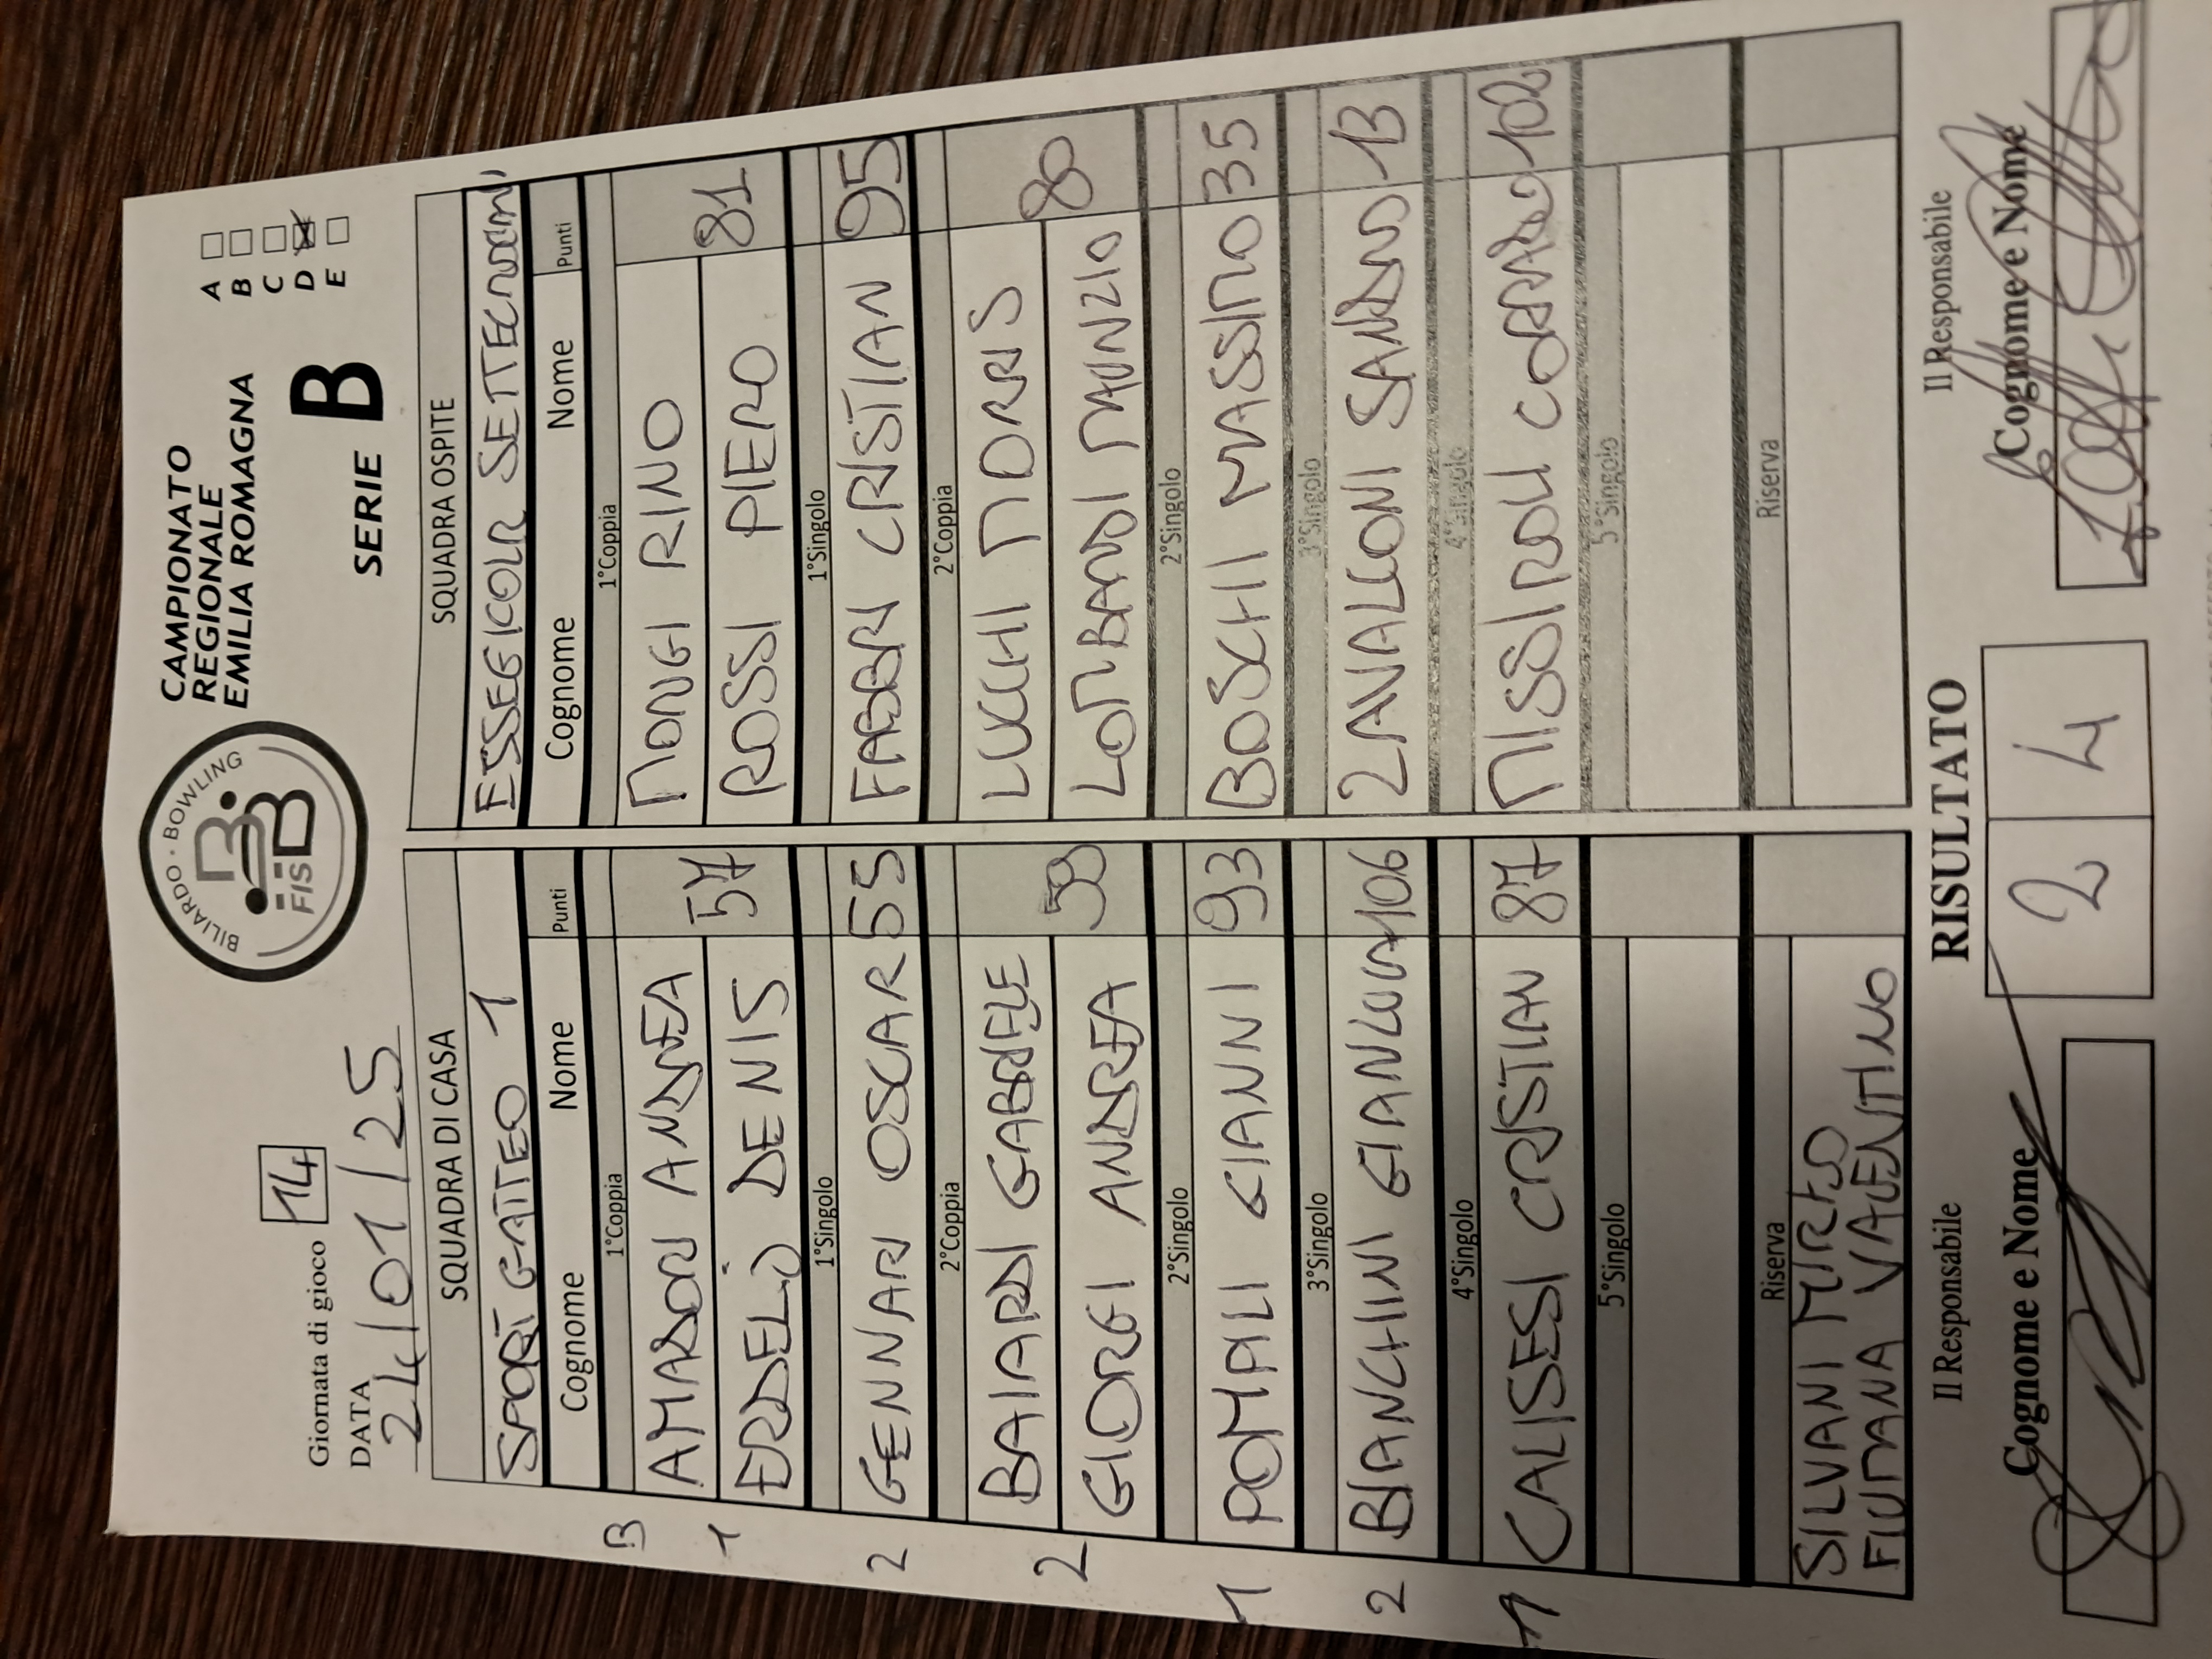 BILIARDO · BOWLING
FISBB
CAMPIONATO
REGIONALE
EMILIA ROMAGNA
SERIE B
A
B
C
D
E
Giornata di gioco 14
DATA
24/01/25
SQUADRA DI CASA
SPORT GATTEO 1
Cognome Nome Punti
1°Coppia
B
AMADORI ANDREA
1 ERDELJ DENIS 57
1°Singolo
2 GENNARI OSCAR 55
2°Coppia
BAIARDI GABRIELE
2 GIORGI ANDREA 59
2°Singolo
1 POMPILI GIANNI 93
3°Singolo
2 BIANCHINI GIANLUCA 106
4°Singolo
1 CALISESI CRISTIAN 87
5°Singolo
Riserva
SILVANI MIRKO
FIUMANA VALENTINO
SQUADRA OSPITE
ESSEGICOLR
Cognome Nome Punti
1°Coppia
MONGI RINO
ROSSI PIERO 81
1°Singolo
FABBRI CRISTIAN 95
2°Coppia
LUCCHI MORRIS
LOMBARDI MAURIZIO 80
2°Singolo
BOSCHI MASSIMO 35
3°Singolo
ZAVALLONI SANDRO 13
4°Singolo
MISSIROLI CORRADO 102
5°Singolo
Riserva
Il Responsabile
Cognome e Nome
RISULTATO
2 4
Il Responsabile
Cognome e Nome